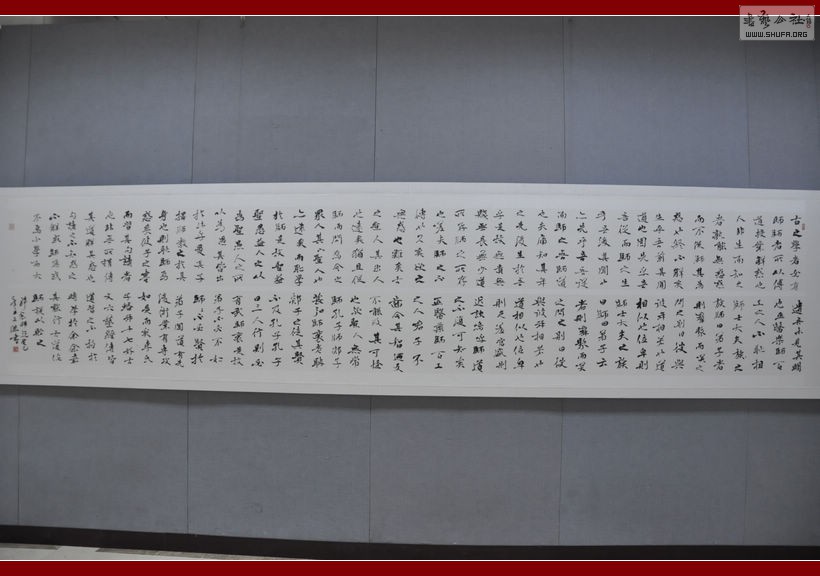 古之學者必有
師師者所以傳
道授業解惑也
人非生而知之
者孰能無惑惑
而不從師其為
惑也終不解矣
生乎吾前其聞
道也固先乎吾
吾從而師之生
乎吾後其聞道
亦先乎吾吾從
而師之吾師道
也夫庸知其年
之先後生於吾
乎是故無貴無
賤無長無少道
之所存師之所存
也嗟夫師道之不
傳也久矣欲人之
無惑也難矣古
之聖人其出人
也遠矣猶且從
師而問焉今之
衆人其下聖人也
亦遠矣而恥學
於師是故聖益
聖愚益愚人之所
以為愚其皆出
於此乎愛其子
擇師教之於其
身也則恥師焉
惑矣彼童子之
而習其句讀者
也非吾所謂傳
其道解其惑也
句讀之不知惑之
不解或師焉或
不焉小學而大
遺吾未見其明
也巫醫樂師百
工之人不恥相
師士大夫之族
曰師曰弟子者
則羣聚而笑之
問之則曰彼與
彼年相若也道
相似也位卑則
師士大夫之族
曰師曰弟子云
者則羣聚而笑
之問之則曰彼
與彼年相若也
道相似也位卑
則足羞官盛則
近諛嗚呼師道
之不復可知矣
巫醫樂師百工
之人君子不
齒今其智乃反
不能及其可怪
也歟聖人無常
師孔子師郯子
萇弘師襄老聃
郯子之徒其賢
不及孔子孔子
曰三人行則必
有我師是故
弟子不必不如
師師不必賢於
弟子聞道有先
後術業有專攻
如是而已李氏
子蟠年十七好古
文六藝經傳皆
通習之不拘於
時學於余余嘉
其能行古道作
師說以貽之
WWW.SHUFA.ORG